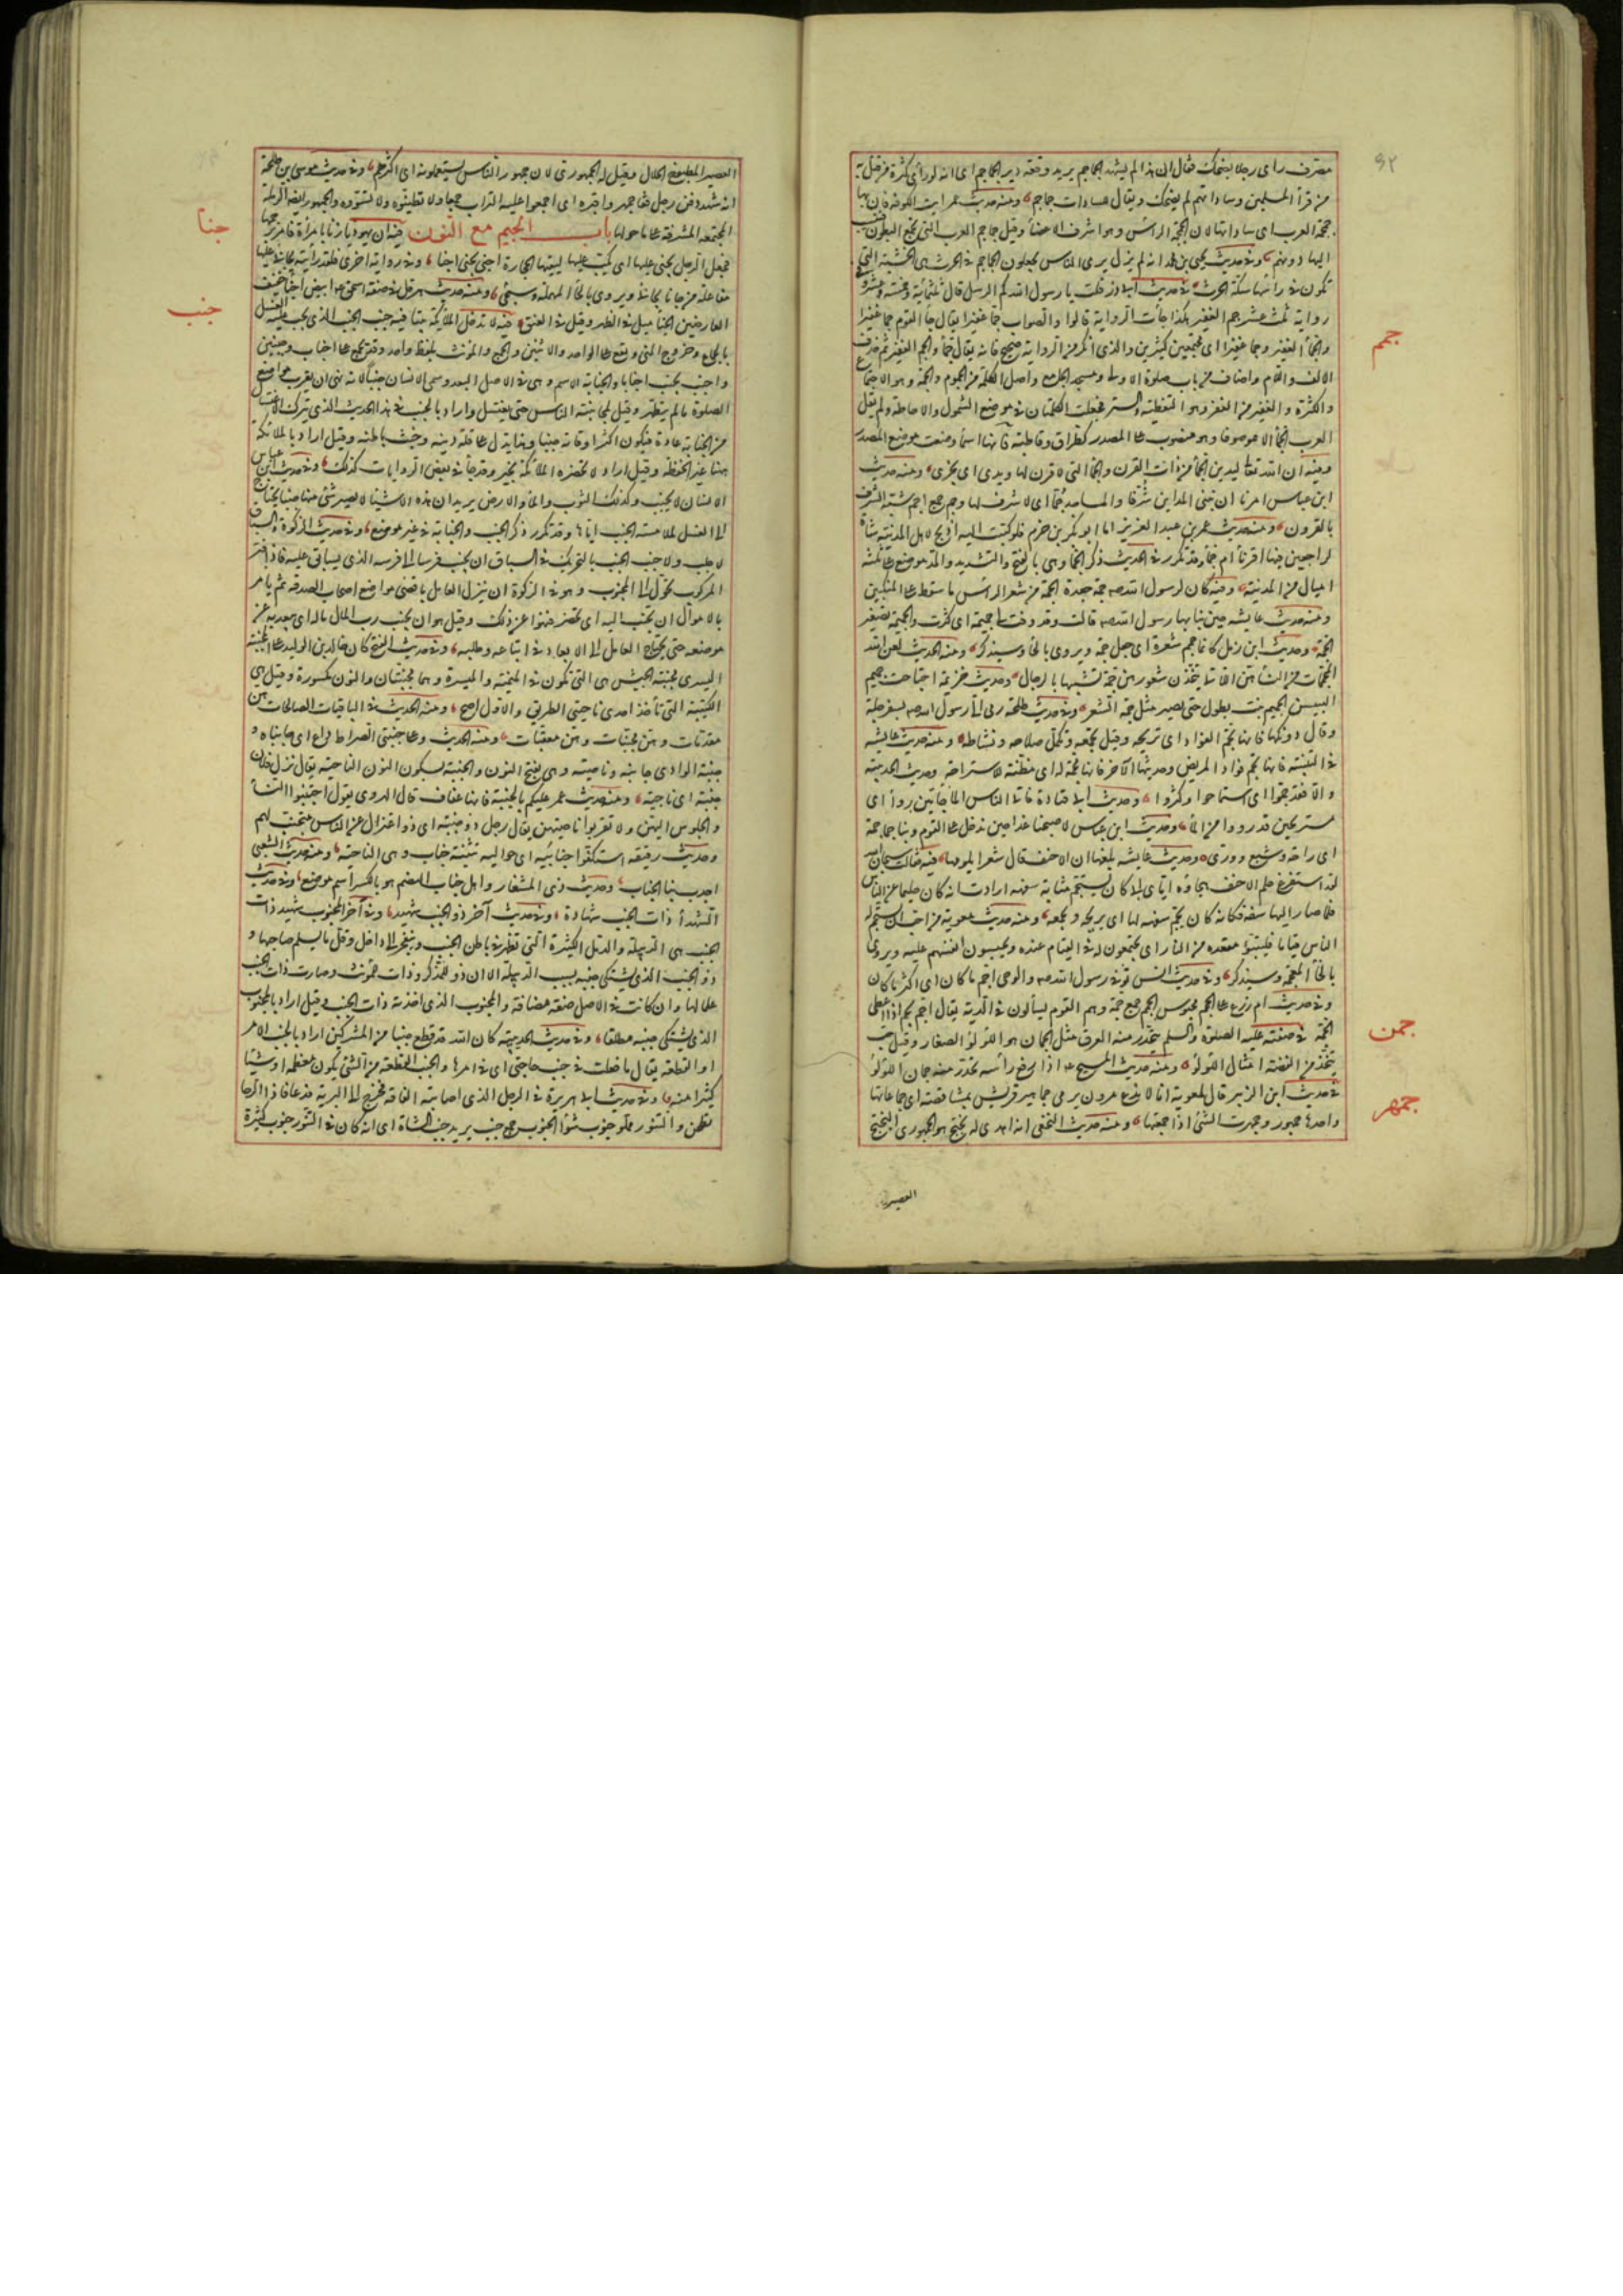 مصرف رأى رجلا يضحك فقال ان هذا لم يشهد الجماجم يريد وقعة دير الجماجم اى انه لو رأى كثرة من قتل به
من قرأ المسلمين وساداتهم لم يضحك ويقال لسادات جماجم ومنه حديث عمر ايت الكوفة فان بها
جمجمة العرب اى ساداتها لان الجمجمة الرأس وهو اشرف الاعضأ وقيل جماجم العرب التى تجمع البطون فينسب
اليها دونهم وفى حديث يحيى بن محمد انه لم يزل يرى الناس يجعلون الجماجم فى الحرث هى الخشبة التى
تكون فى رأسها سكة الحرث فى حديث ابى ذر قلت يا رسول الله كم الرسل قال ثلثماية وخمسة عشر وفى
رواية ثلث عشر جم الغفير هكذا جأت الرواية قالوا والصواب جما غفيرا يقال جأ القوم جما غفيرا
والجمأ الغفير وجما غفيرا اى مجتمعين كثيرين والذى انكر من الرواية صحيح فانه يقال جأوا الجم الغفير ثم حذف
الالف واللام واضاف من باب صلوة الاولى ومسجد الجامع واصل الكلمة من الجموم والجمة وهو الاجتماع
والكثرة والغفير من الغفر وهو التغطية والستر فجعلت الكلمتان فى موضع الشمول والاحاطة ولم يقل
العرب الجمأ الا موصوفا وهو منصوب على المصدر كطرا وقاطبة فانها اسمأ وضعت موضع المصدر
وفيه ان الله تعالى ليدين الجمأ من ذات القرن والجمأ التى لا قرن لها ويدى اى يجزى ومنه حديث
ابن عباس امرنا ان نبنى المداين شرفا والمساجد جما اى لا شرف لها وجم جمع اجم شبه الشرف
بالقرون ومنه حديث عمر بن عبد العزيز اما ابو بكر بن حزم فلو كتبت اليه اذبح لاهل المدينة شاة
لراجعنى فيها اقرنأ ام جمأ وقد تكرر فى الحديث ذكر الجمأ وهى بالفتح والتشديد والمد موضع على ثلثة
اميال من المدينة وفيه كان لرسول الله صم جمة جعدة الجمة من شعر الرأس ما سقط على المنكبين
ومنه حديث عايشه حين بنا بها رسول الله صم قالت وقد وفت لى جميمة اى كثرت والجميمة تصغير
الجمة وحديث ابن زمل كانما جمم شعره اى جعل جمة ويروى بالحأ وسيذكر ومنه الحديث لعن الله
المجممات من النسأ هن اللاتى يتخذن شعورهن جمة تشبها بالرجال وحديث خزيمة اجتاحت جميم
اليبيس الجميم نبت يطول حتى يصير مثل جمة الشعر وفى حديث طلحة رمى الى رسول الله صم بسفرجلة
وقال دونكها فانها تجم الفؤاد اى تريحه وقيل تجمعه وتكمل صلاحه ونشاطه ومنه حديث عايشه
فى التلبينة فانها تجم فواد المريض وحديثها الآخر فانها مجمة له اى مظنة للاستراحة وحديث الحديبية
والا فقد جموا اى استراحوا وكثروا وحديث ابى قتادة فاتى الناس المأ جامين روأ اى
مستريحين قد رووا من المأ وحديث ابن عباس لاصبحنا غدا حين ندخل على القوم وبنا جمامة
اى راحة وشبع ورى وحديث عايشه بلغها ان الاحنف قال شعرا يلومها فيه فقالت سبحان الله
لقد استفرغ حلم الاحنف هجاؤه اياى ألى كان يستجم مثابة سفهه ارادت انه كان حليما عن الناس
فلما صار اليها سفه فكانه كان يجم سفهه لها اى يريحه ويجمعه ومنه حديث معوية من احب ان يستجم له
الناس قياما فليتبوأ مقعده من النار اى يجتمعون له فى القيام عنده ويحبسون انفسهم عليه ويروى
بالخأ المعجمة وسيذكر وفى حديث انس توفى رسول الله صم والوحى اجم ما كان اى اكثر ما كان
وفى حديث ام زرع على الجمم محبوس الجمم جمع جمة وهم القوم يسألون فى الدية يقال اجم يجم اذا اعطى
الجمة فى صفته عليه الصلوة والسلم يتحدر منه العرق مثل الجمان هو اللؤلؤ الصغار وقيل حب
يتخذ من الفضة امثال اللؤلؤ ومنه حديث المسيح عم اذا رفع رأسه تحدر منه جمان اللؤلؤ
فى حديث ابن الزبير قال لمعوية انا لا ندع مروان يرمى جماهير قريش بمشاقصه اى جماعاتها
واحدها جمهور وجمهرت الشئ اذا جمعتها ومنه حديث النخعى انه اهدى له بختج هو الجمهورى البختج
جمم
جمن
جمهر
العصير
العصير المطبوخ الحلال وقيل له الجمهورى لان جمهور الناس يستعملونه اى اكثرهم وفى حديث موسى بن طلحة
انه شهد دفن رجل فقال جمهروا قبره اى اجمعوا عليه التراب جمعا ولا تطينوه ولا تسووه والجمهور ايضا الرملة
المجتمعة المشرفة على ما حولها باب الجيم مع النون فيه ان يهوديا زنا بامرأة فامر برجمها
فجعل الرجل يجنى عليها اى يكب عليها ليقيها الحجارة اجنى يجنى اجنا وفى رواية اخرى فلقد رأيته يجانئ عليها
مفاعلة من جانا يجانئ ويروى بالحأ المهملة وسيجئ ومنه حديث هرقل فى صفة اسحق عم ابيض اجنأ خفيف
العارضين الجنأ ميل فى الظهر وقيل فى العنق فيه لا تدخل الملائكة بيتا فيه جنب الجنب الذى يجب عليه الغسل
بالجماع وخروج المنى ويقع على الواحد والاثنين والجمع والمؤنث بلفظ واحد وقد يجمع على اجناب وجنبين
واجنب يجنب اجنابا والجنابة الاسم وهى فى الاصل البعد وسمى الانسان جنبا لانه نهى ان يقرب مواضع
الصلوة ما لم يتطهر وقيل لمجانبته الناس حتى يغتسل واراد بالجنب فى هذا الحديث الذى يترك الاغتسال
من الجنابة عادة فيكون اكثر اوقاته جنبا وهذا يدل على قلة دينه وخبث باطنه وقيل اراد بالملائكة
هنا غير الحفظة وقيل اراد لا تحضره الملائكة بخير وقد جأ فى بعض الروايات كذلك وفى حديث ابن عباس
الانسان لا يجنب وكذلك الثوب والمأ والارض يريد ان هذه الاشيأ لا يصير شئ منها جنبا يحتاج
الى الغسل لملامسة الجنب اياها وقد تكرر ذكر الجنب والجنابة فى غير موضع وفى حديث الزكوة والسباق
لا جلب ولا جنب الجنب بالتحريك فى السباق ان يجنب فرسا الى فرسه الذى يسابق عليه فاذا فتر
المركوب تحول الى المجنوب وهو فى الزكوة ان ينزل العامل باقصى مواضع اصحاب الصدقة ثم يأمر
بالاموال ان تجنب اليه اى تحضر فنهوا عن ذلك وقيل هو ان يجنب رب المال بماله اى يبعده عن
موضعه حتى يحتاج العامل الى الابعاد فى اتباعه وطلبه وفى حديث الفتح كان خالد بن الوليد على المجنبة
اليسرى مجنبة الجيش هى التى تكون فى الميمنة والميسرة وهما مجنبتان والنون مكسورة وقيل هى
الكتيبة التى تأخذ احدى ناحيتى الطريق والاول اصح ومنه الحديث فى الباقيات الصالحات هن
مقدمات وهن مجنبات وهن معقبات ومنه الحديث وعلى جنبتى الصراط داع اى جانباه و
جنبة الوادى جانبه وناحيته وهى بفتح النون والجنبة بسكون النون الناحية يقال نزل فلان
جنبة اى ناحية ومنه حديث عمر عليكم بالجنبة فانها عفاف قال الهروى يقول اجتنبوا النسأ
والجلوس اليهن ولا تقربوا ناحيتهن يقال رجل ذو جنبة اى ذو اعتزال عن الناس متجنب لهم
وحديث رقيقة استكفوا جنابيه اى حواليه تثنية جناب وهى الناحية ومنه حديث الشعبى
اجدب بنا الجناب وحديث ذى المشعار واهل جناب الهضم هو بالكسر اسم موضع وفى حديث
الشهدأ ذات الجنب شهادة وفى حديث آخر ذو الجنب شهيد وفى آخر المجنوب شهيد ذات
الجنب هى الدبيلة والدمل الكبيرة التى تظهر فى باطن الجنب وتنفجر الى داخل وقل ما يسلم صاحبها و
ذو الجنب الذى يشتكى جنبه بسبب الدبيلة الا ان ذو للمذكر وذات للمونث وصارت ذات الجنب
علما لها وان كانت فى الاصل صفة مضافة والمجنوب الذى اخذته ذات الجنب وقيل اراد بالمجنوب
الذى يشتكى جنبه مطلقا وفى حديث الحديبية كان الله قد قطع جنبا من المشركين اراد بالجنب الامر
او القطعة يقال ما فعلت فى جنب حاجتى اى فى امرها والجنب القطعة من الشئ يكون معظمه او شيئا
كثيرا منه وفى حديث ابى هريرة فى الرجل الذى اصابته الفاقة فخرج الى البرية فدعا فاذا الرحا
تطحن والتنور مملو جنوب شوأ الجنوب جمع جنب يريد جنب الشاة اى انه كان فى التنور جنوب كثيرة
جنا
جنب